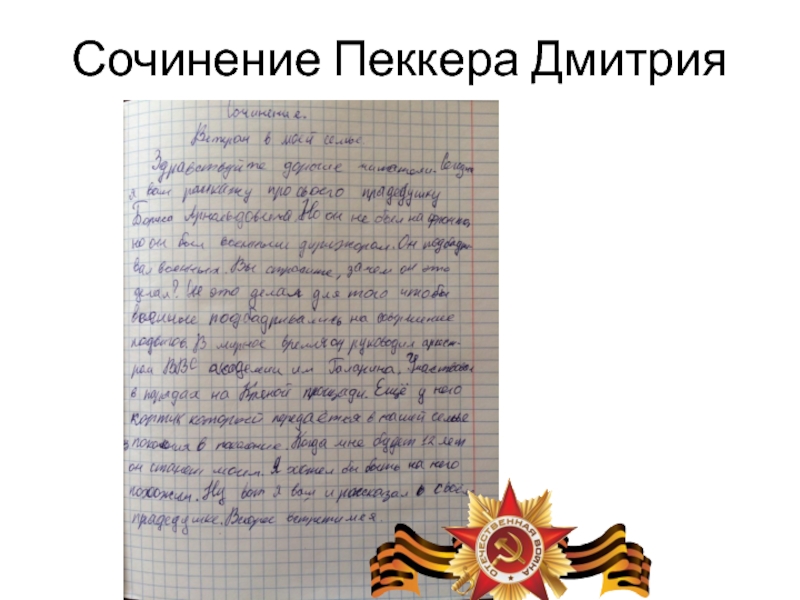 Сочинение Пеккера Дмитрия
Сочинение.
Ветеран в моей семье
Здравствуйте дорогие читатели. Сегодня
я вам раскажу про своего прадедушку
Бориса Арнольдовича. Но он не был на фронте,
но он был военным дирижором. Он подбадри-
вал военных. Вы спросите, зачем он это
делал? Он это делал для того чтобы
военные подбадривались на совершение
подвигов. В мирное время он руководил оркест-
ром ВВС академии им Гагарина. Участвовал
в парадах на Красной площади. Ещё у него
кортик который передаётся в нашей семье
из поколения в поколение. Когда мне будет 12 лет
он станет моим. Я хотел бы быть на него
похожим. Ну вот я вам и рассказал о своём
прадедушке. Вскоре встретимся.
ОТЕЧЕСТВЕННАЯ ВОЙНА